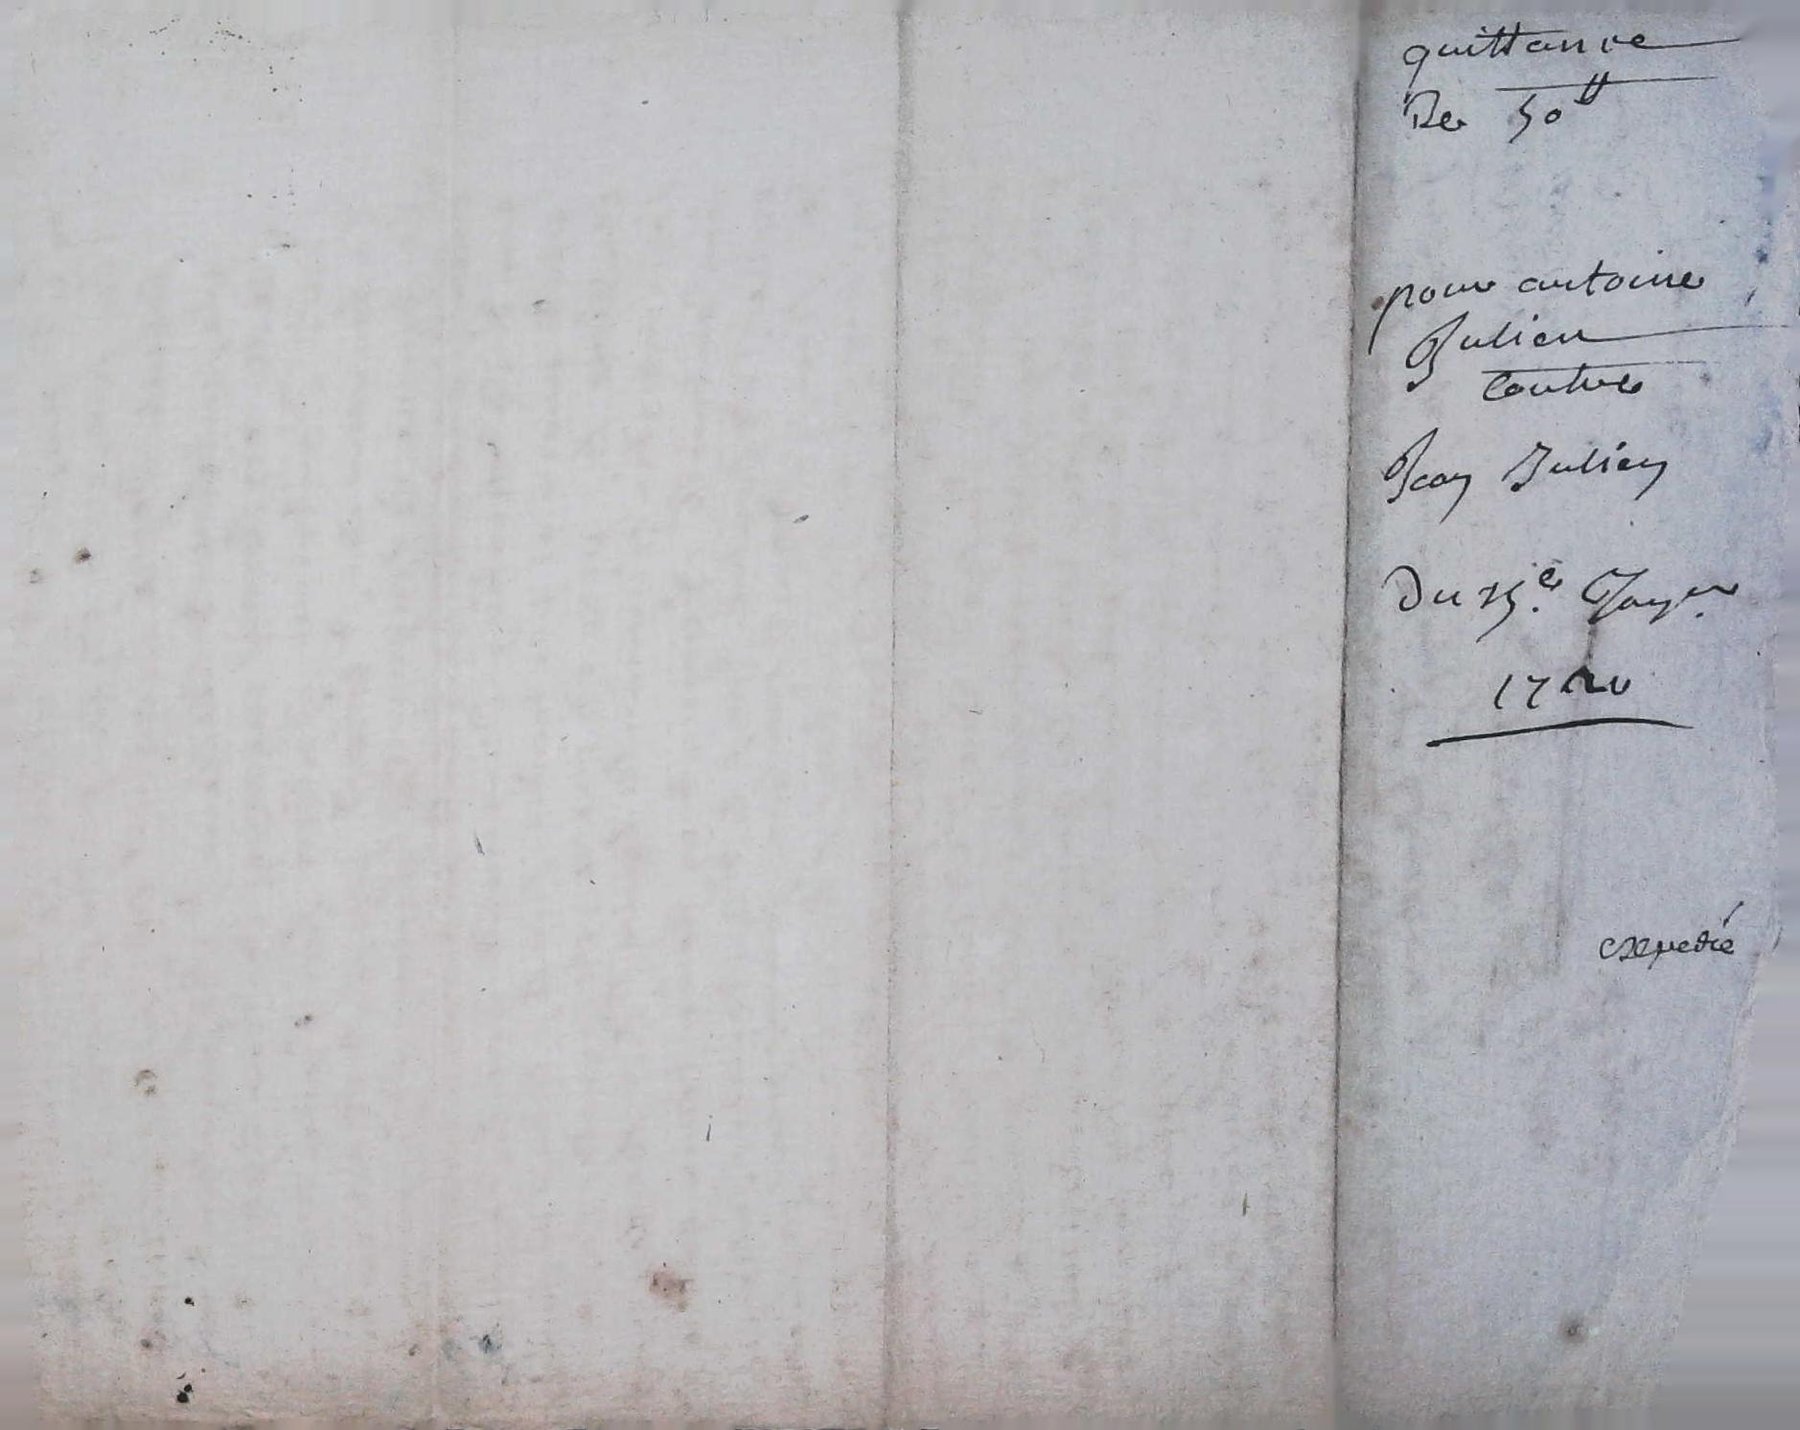 quittance
De 50 ₶
pour antoine
Julien
Contre
Jean Julien
Du 15.e Janer.
expedié